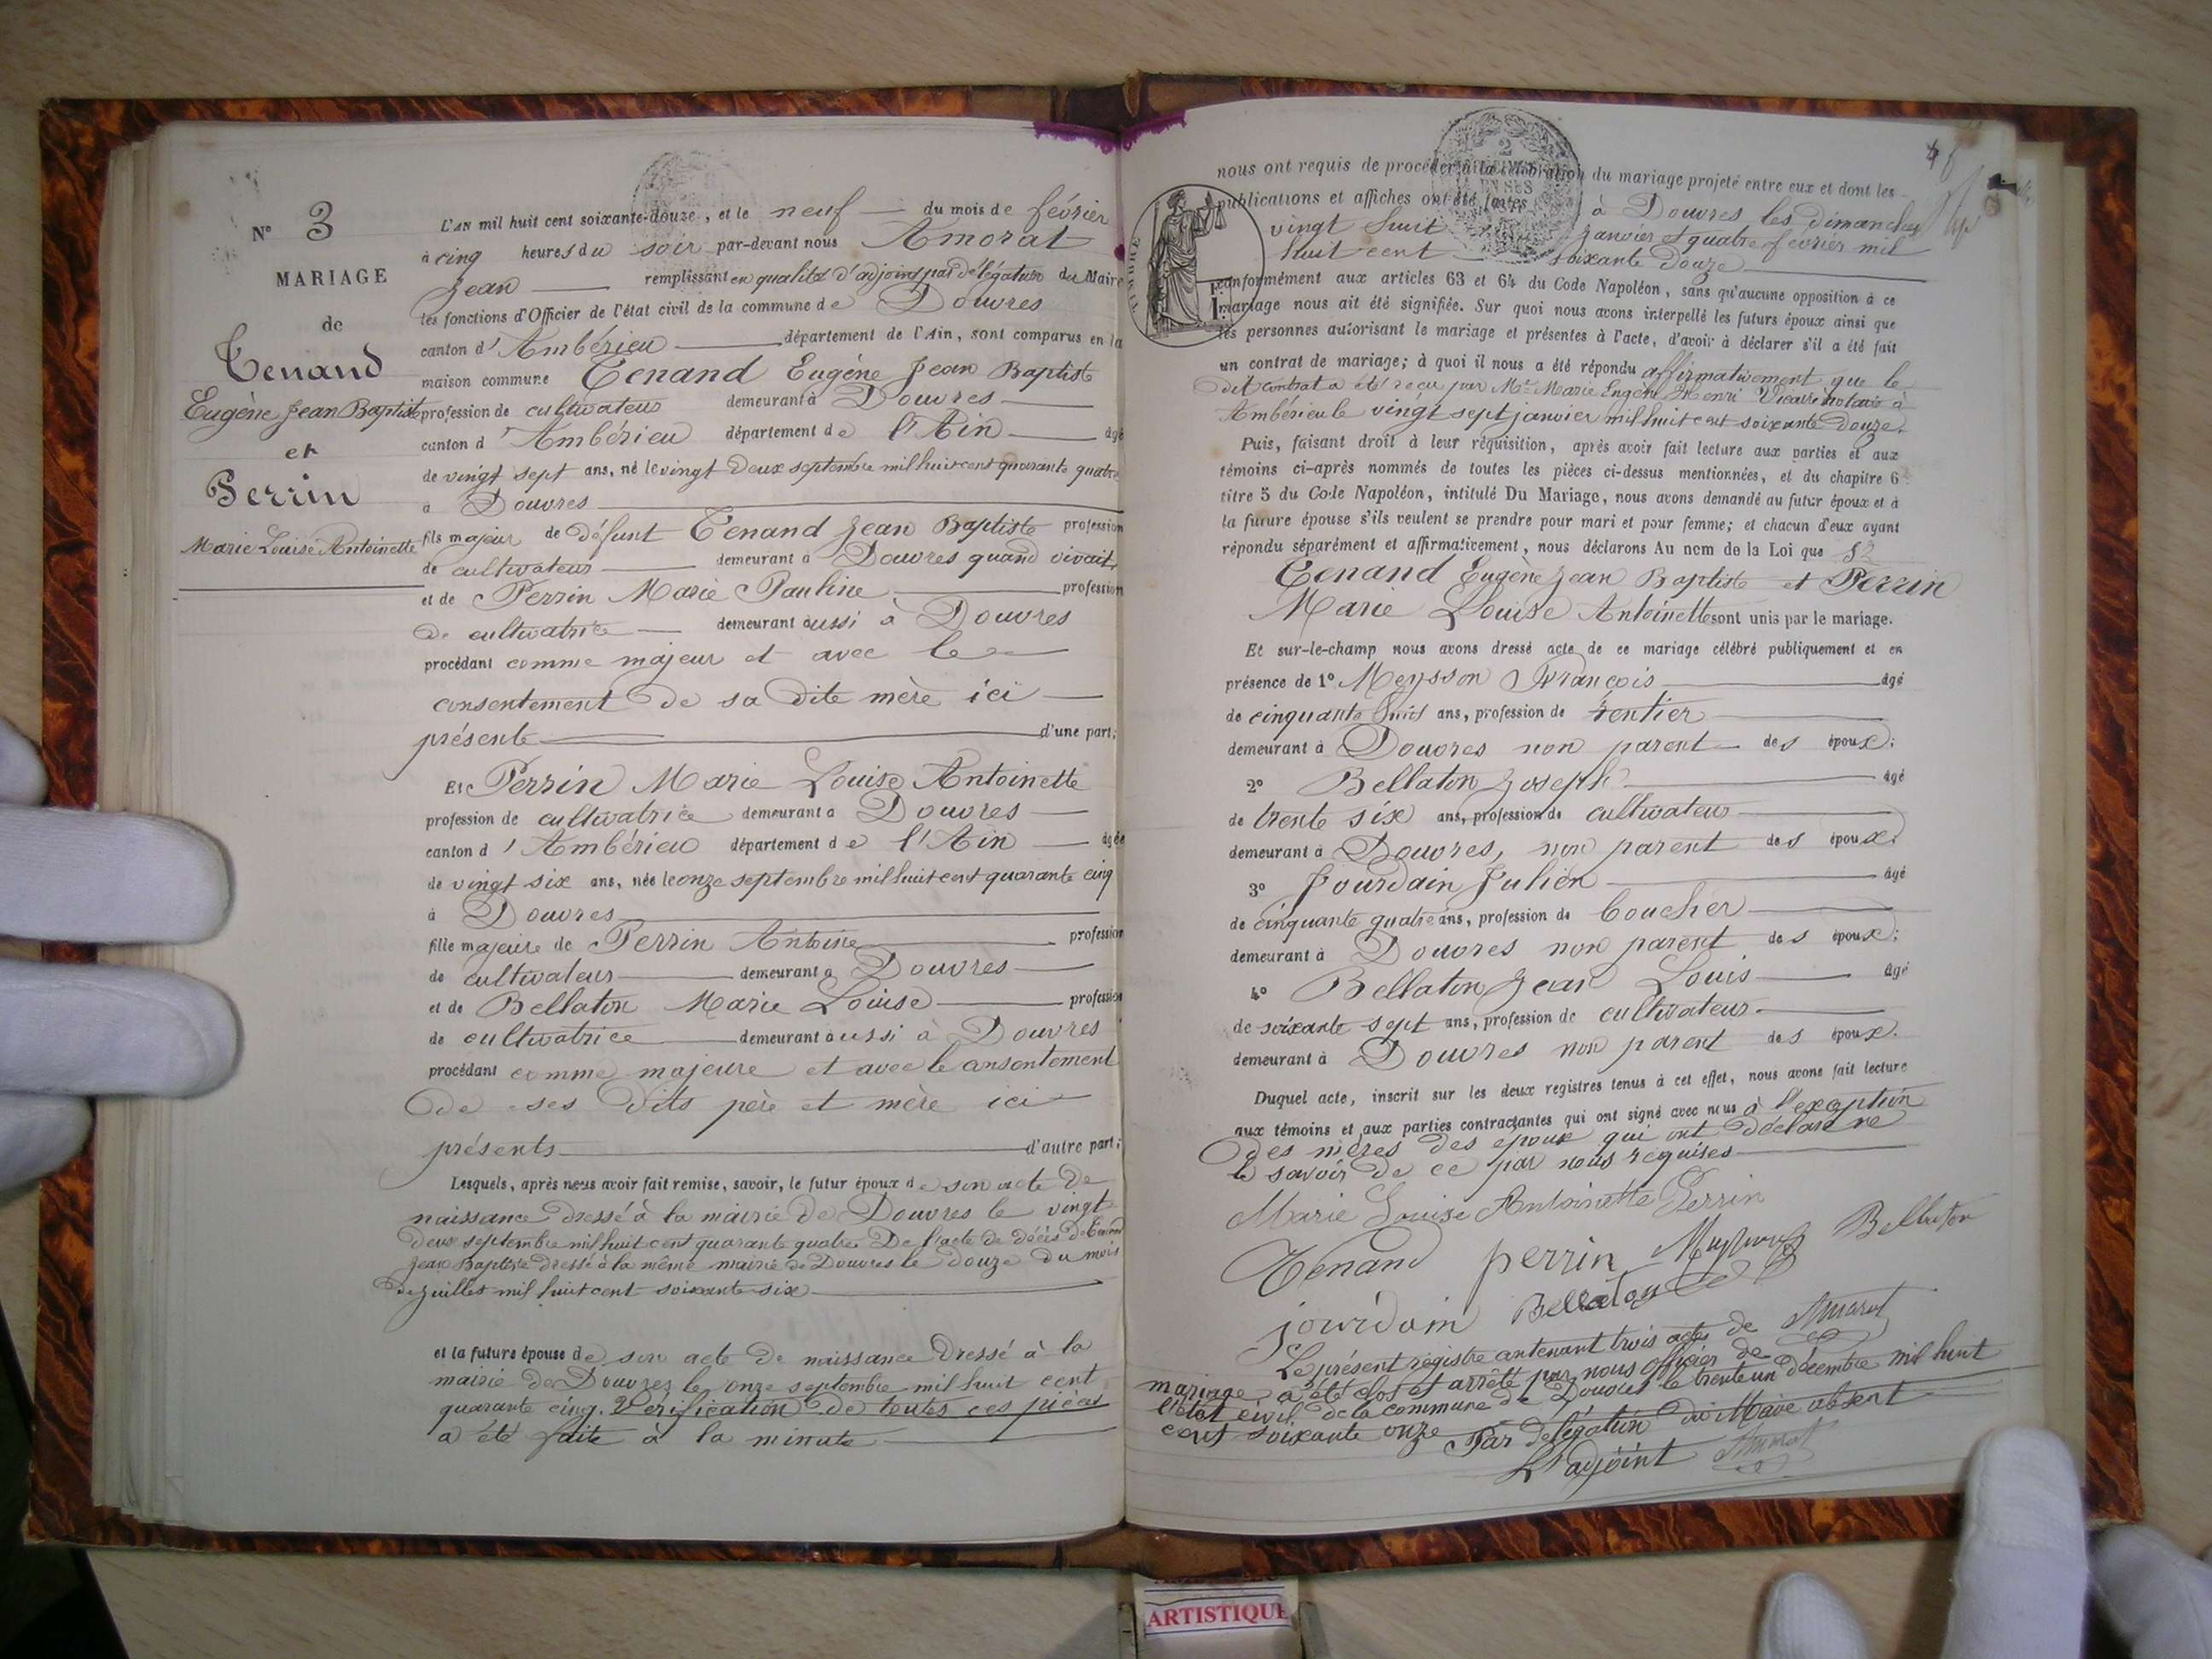 N° 3
MARIAGE
de
Tenand
Eugène Jean Baptiste
et
Perrin
Marie Louise Antoinette
L'AN mil huit cent soixante-douze, et le neuf du mois de février
à cinq heures du soir par-devant nous Amorat
Jean remplissant en qualité d'adjoint par délégation du Maire
les fonctions d'Officier de l'état civil de la commune de Douvres
canton d'Ambérieu département de l'Ain, sont comparus en la
maison commune Tenand Eugène Jean Baptiste
profession de cultivateur demeurant à Douvres
canton d'Ambérieu département de l'Ain âgé
de vingt sept ans, né le vingt deux septembre mil huit cent quarante quatre
à Douvres
fils majeur de défunt Tenand Jean Baptiste profession
de cultivateur demeurant à Douvres quand vivait,
et de Perrin Marie Pauline profession
de cultivatrice demeurant aussi à Douvres
procédant comme majeur et avec le
consentement de sa dite mère ici
présente d'une part;
Et Perrin Marie Louise Antoinette
profession de cultivatrice demeurant à Douvres
canton d'Ambérieu département de l'Ain âgée
de vingt six ans, née le onze septembre mil huit cent quarante cinq
à Douvres
fille majeure de Perrin Antoine profession
de cultivateur demeurant à Douvres
et de Bellaton Marie Louise profession
de cultivatrice demeurant aussi à Douvres
procédant comme majeure et avec le consentement
de ses dits père et mère ici
présents d'autre part;
Lesquels, après nous avoir fait remise, savoir, le futur époux de son acte de
naissance dressé à la mairie de Douvres le vingt
deux septembre mil huit cent quarante quatre De l'acte de décès de Tenand
Jean Baptiste dressé à la même mairie de Douvres le douze du mois
de juillet mil huit cent soixante six
et la future épouse de son acte de naissance dressé à la
mairie de Douvres le onze septembre mil huit cent
quarante cinq. Vérification de toutes ces pièces
a été faite à la minute
nous ont requis de procéder à la célébration du mariage projeté entre eux et dont les
publications et affiches ont été faites à Douvres les dimanches
vingt huit janvier et quatre février mil
huit cent soixante douze
conformément aux articles 63 et 64 du Code Napoléon, sans qu'aucune opposition à ce
mariage nous ait été signifiée. Sur quoi nous avons interpellé les futurs époux ainsi que
les personnes autorisant le mariage et présentes à l'acte, d'avoir à déclarer s'il a été fait
un contrat de mariage; à quoi il nous a été répondu affirmativement que le
dit contrat a été reçu par Me Marie Eugène Henri Vicaire notaire à
Ambérieu le vingt sept janvier mil huit cent soixante douze.
Puis, faisant droit à leur réquisition, après avoir fait lecture aux parties et aux
témoins ci-après nommés de toutes les pièces ci-dessus mentionnées, et du chapitre 6
titre 5 du Code Napoléon, intitulé Du Mariage, nous avons demandé au futur époux et à
la future épouse s'ils veulent se prendre pour mari et pour femme; et chacun d'eux ayant
répondu séparément et affirmativement, nous déclarons Au nom de la Loi que
Tenand Eugène Jean Baptiste et Perrin
Marie Louise Antoinette sont unis par le mariage.
Et sur-le-champ nous avons dressé acte de ce mariage célébré publiquement et en
présence de 1° Meysson François âgé
de cinquante huit ans, profession de rentier
demeurant à Douvres non parent des époux;
2° Bellaton Joseph âgé
de trente six ans, profession de cultivateur
demeurant à Douvres, non parent des époux;
3° Jourdain Julien âgé
de cinquante quatre ans, profession de boucher
demeurant à Douvres non parent des époux;
4° Bellaton Jean Louis âgé
de soixante sept ans, profession de cultivateur
demeurant à Douvres non parent des époux.
Duquel acte, inscrit sur les deux registres tenus à cet effet, nous avons fait lecture
aux témoins et aux parties contractantes qui ont signé avec nous à l'exception
des mères des époux qui ont déclaré ne
le savoir de ce par nous requises
Marie Louise Antoinette Perrin
Tenand perrin Bellaton
jourdain Bellaton Amorat
Le présent registre contenant trois actes de
mariage a été clos et arrêté par nous officier de
l'état civil de la commune de Douvres le trente un décembre mil huit
cent soixante onze Par délégation du Maire absent
L'adjoint Amorat
ARTISTIQUE